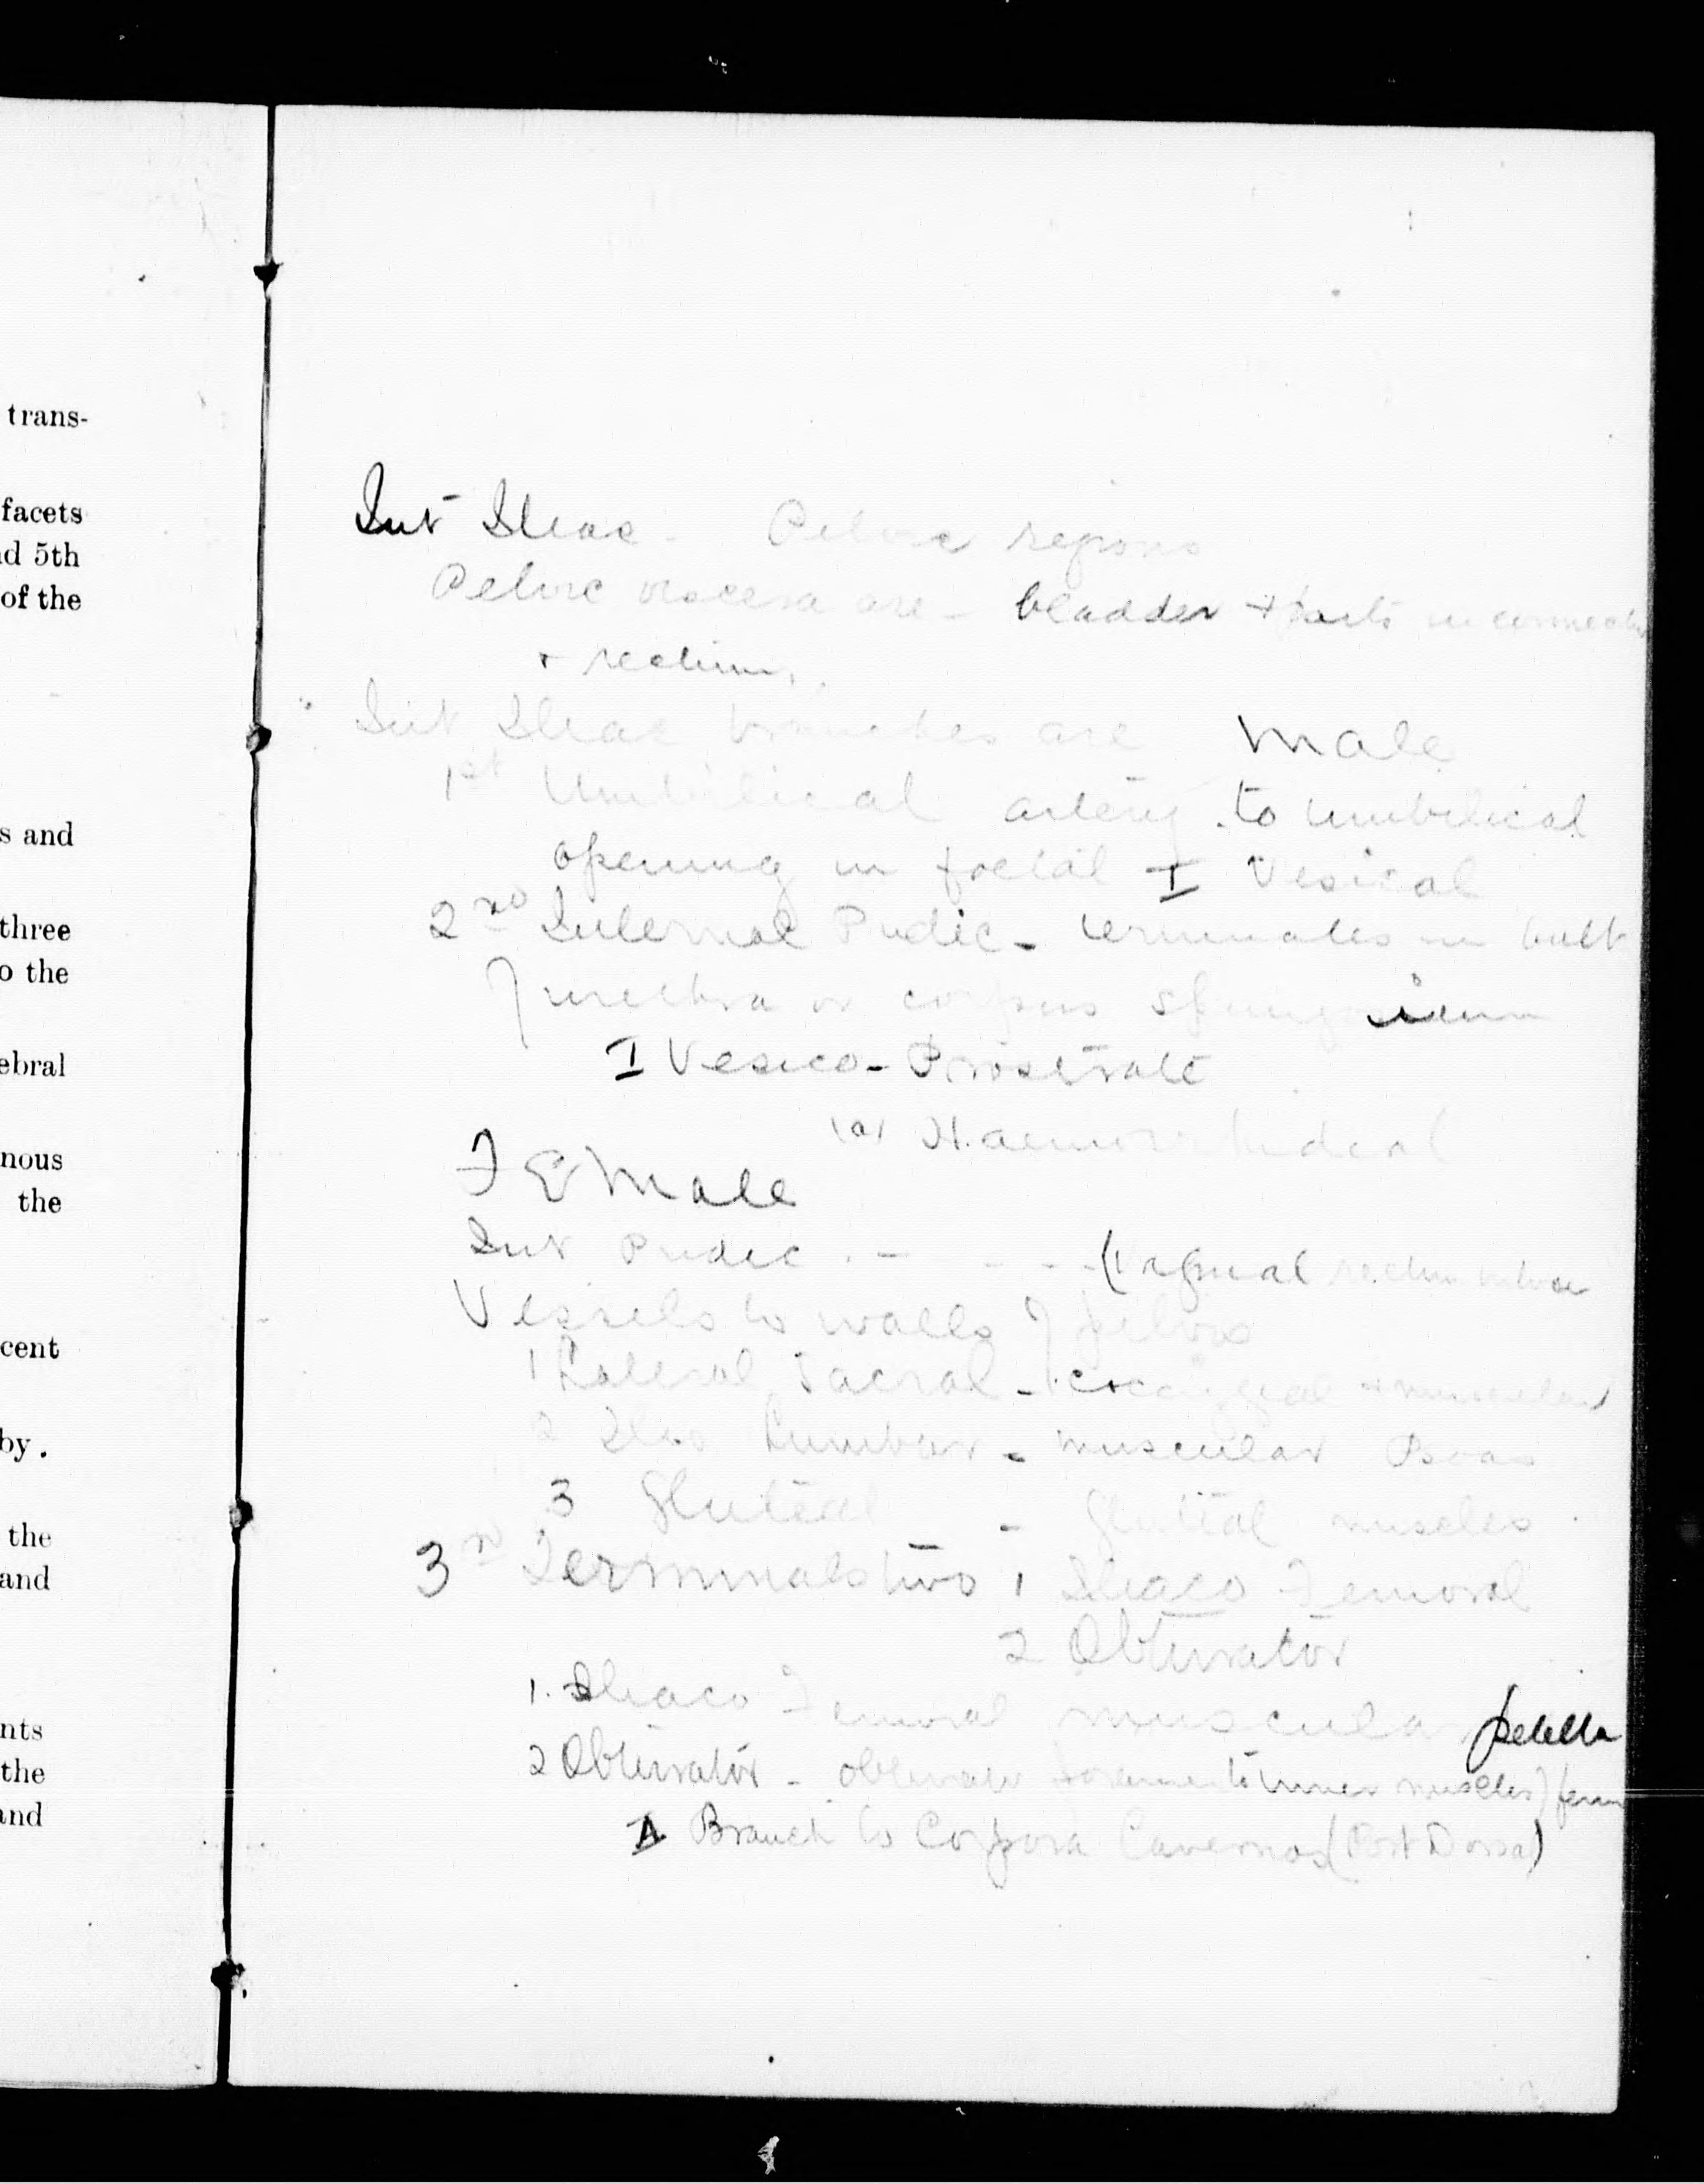 trans-
facets
nd 5th
of the
s and
three
o the
ebral
nous
the
cent
by.
the
and
nts
the
and
Int Iliac - Pelvic regions
Pelvic viscera are - bladder + parts in connection
+ rectum.
Int Iliac branches are Male
1st Umbilical artery. to umbilical
opening in foetal I Vesical
2nd Internal Pudic - terminates in bulb
of urethra or corpus spongiosum
I Vesico-Prostrate
(a) Haemorrhidal
FEMale
Int Pudic - - - - (Vaginal rectum vulva
Vessels to walls of pelvis
1 Lateral Sacral - coccygeal + muscular
2 Ilio Lumbar - muscular Psoas
3 Gluteal - Gluteal muscles
3rd Terminals two 1 Iliaco Femoral
2 Obturator
1. Iliaco Femoral muscular patella
2 Obturator - obturator foramen to inner muscles)
A Branch to Corpora Cavernosa (Post Dorsal)